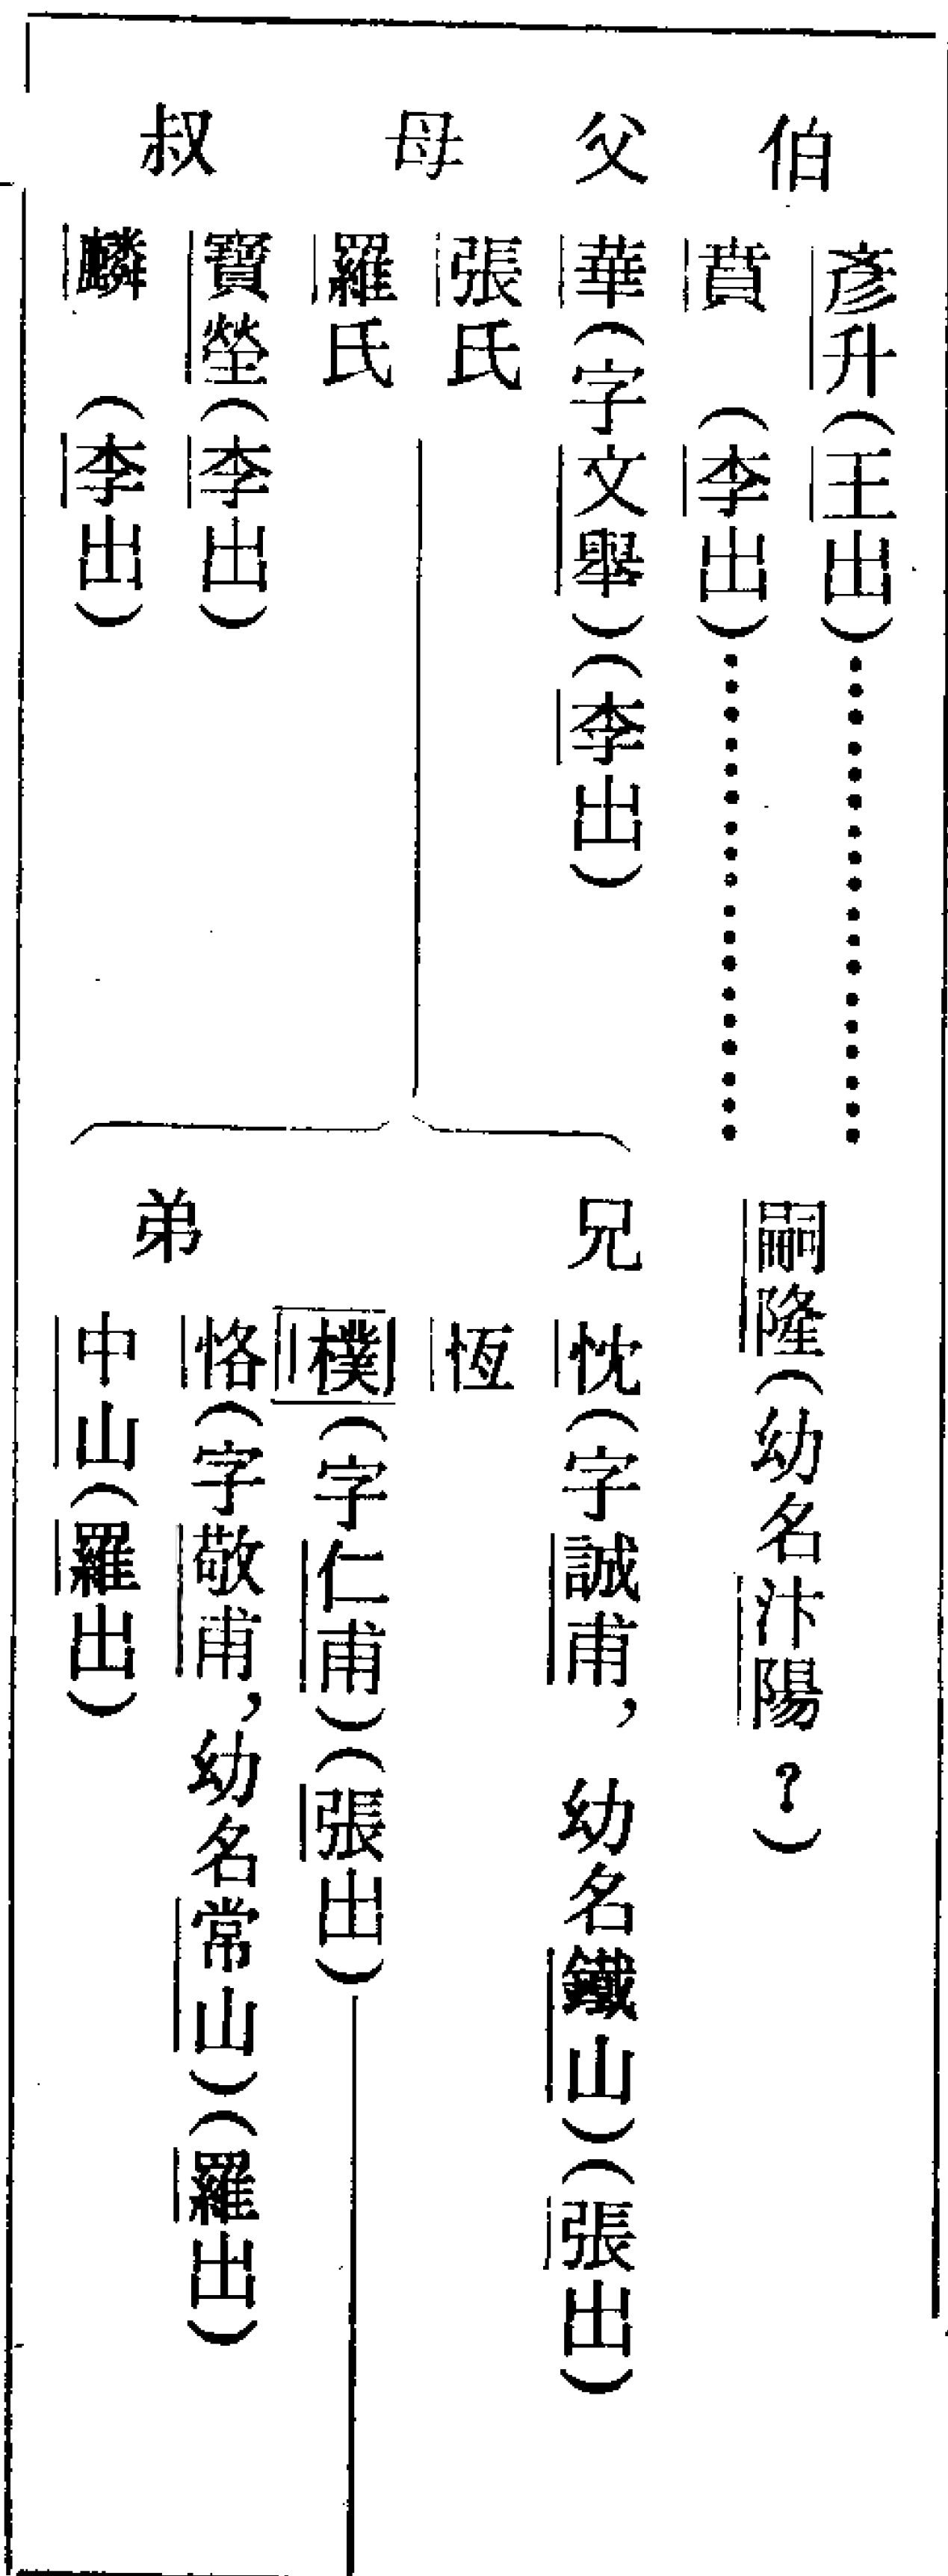 伯
彥升(王出)
賁 (李出)
父
華(字文舉)(李出)
母
張氏
羅氏
叔
寶瑩(李出)
麟 (李出)
嗣隆(幼名汴陽?)
兄
忱(字誠甫,幼名鐵山)(張出)
恆
樸(字仁甫)(張出)
弟
恪(字敬甫,幼名常山)(羅出)
中山(羅出)